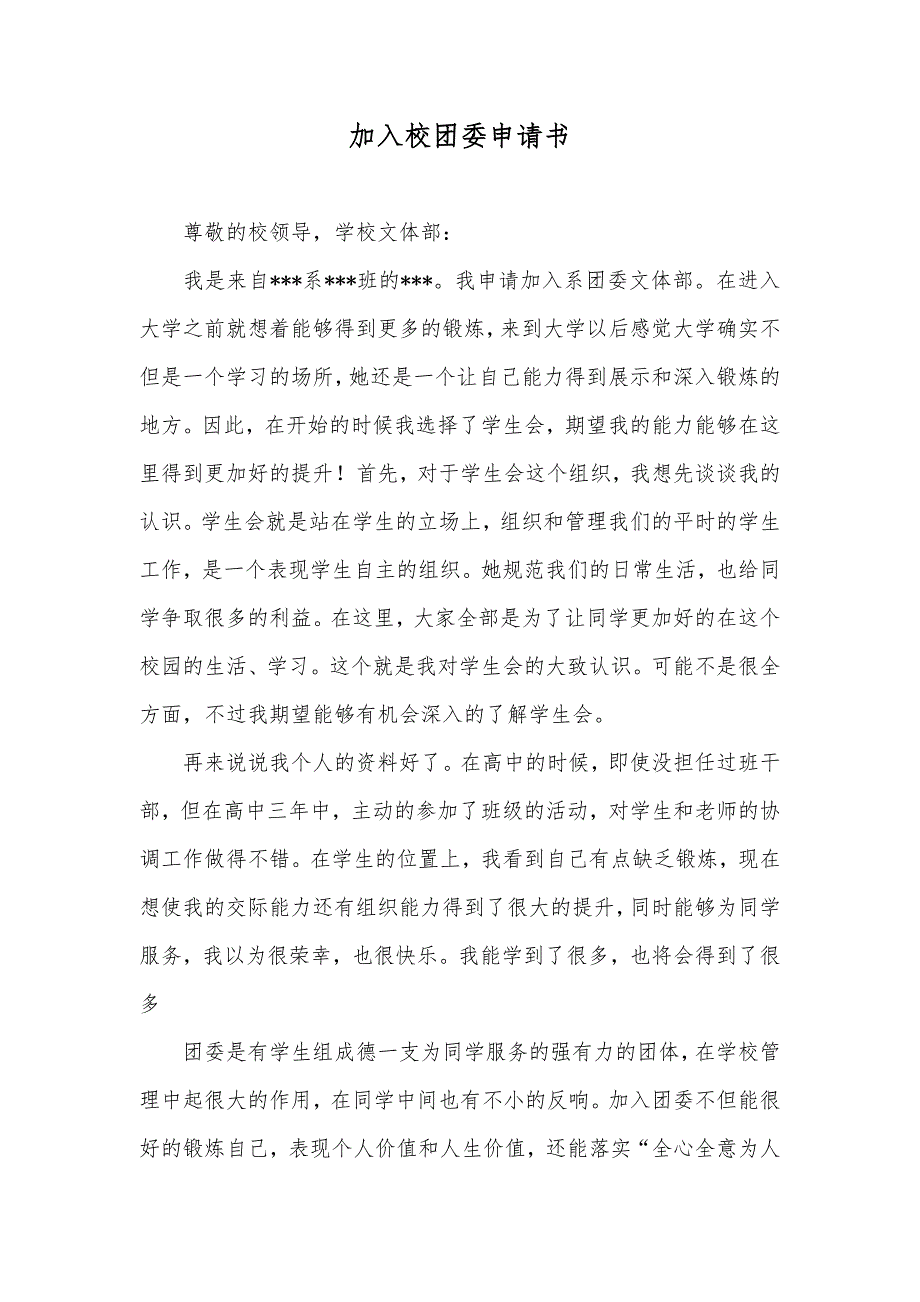 加入校团委申请书
尊敬的校领导，学校文体部：
我是来自***系***班的***。我申请加入系团委文体部。在进入
大学之前就想着能够得到更多的锻炼，来到大学以后感觉大学确实不
但是一个学习的场所，她还是一个让自己能力得到展示和深入锻炼的
地方。因此，在开始的时候我选择了学生会，期望我的能力能够在这
里得到更加好的提升！首先，对于学生会这个组织，我想先谈谈我的
认识。学生会就是站在学生的立场上，组织和管理我们的平时的学生
工作，是一个表现学生自主的组织。她规范我们的日常生活，也给同
学争取很多的利益。在这里，大家全部是为了让同学更加好的在这个
校园的生活、学习。这个就是我对学生会的大致认识。可能不是很全
方面，不过我期望能够有机会深入的了解学生会。
再来说说我个人的资料好了。在高中的时候，即使没担任过班干
部，但在高中三年中，主动的参加了班级的活动，对学生和老师的协
调工作做得不错。在学生的位置上，我看到自己有点缺乏锻炼，现在
想使我的交际能力还有组织能力得到了很大的提升，同时能够为同学
服务，我以为很荣幸，也很快乐。我能学到了很多，也将会得到了很
多
团委是有学生组成德一支为同学服务的强有力的团体，在学校管
理中起很大的作用，在同学中间也有不小的反响。加入团委不但能很
好的锻炼自己，表现个人价值和人生价值，还能落实“全心全意为人